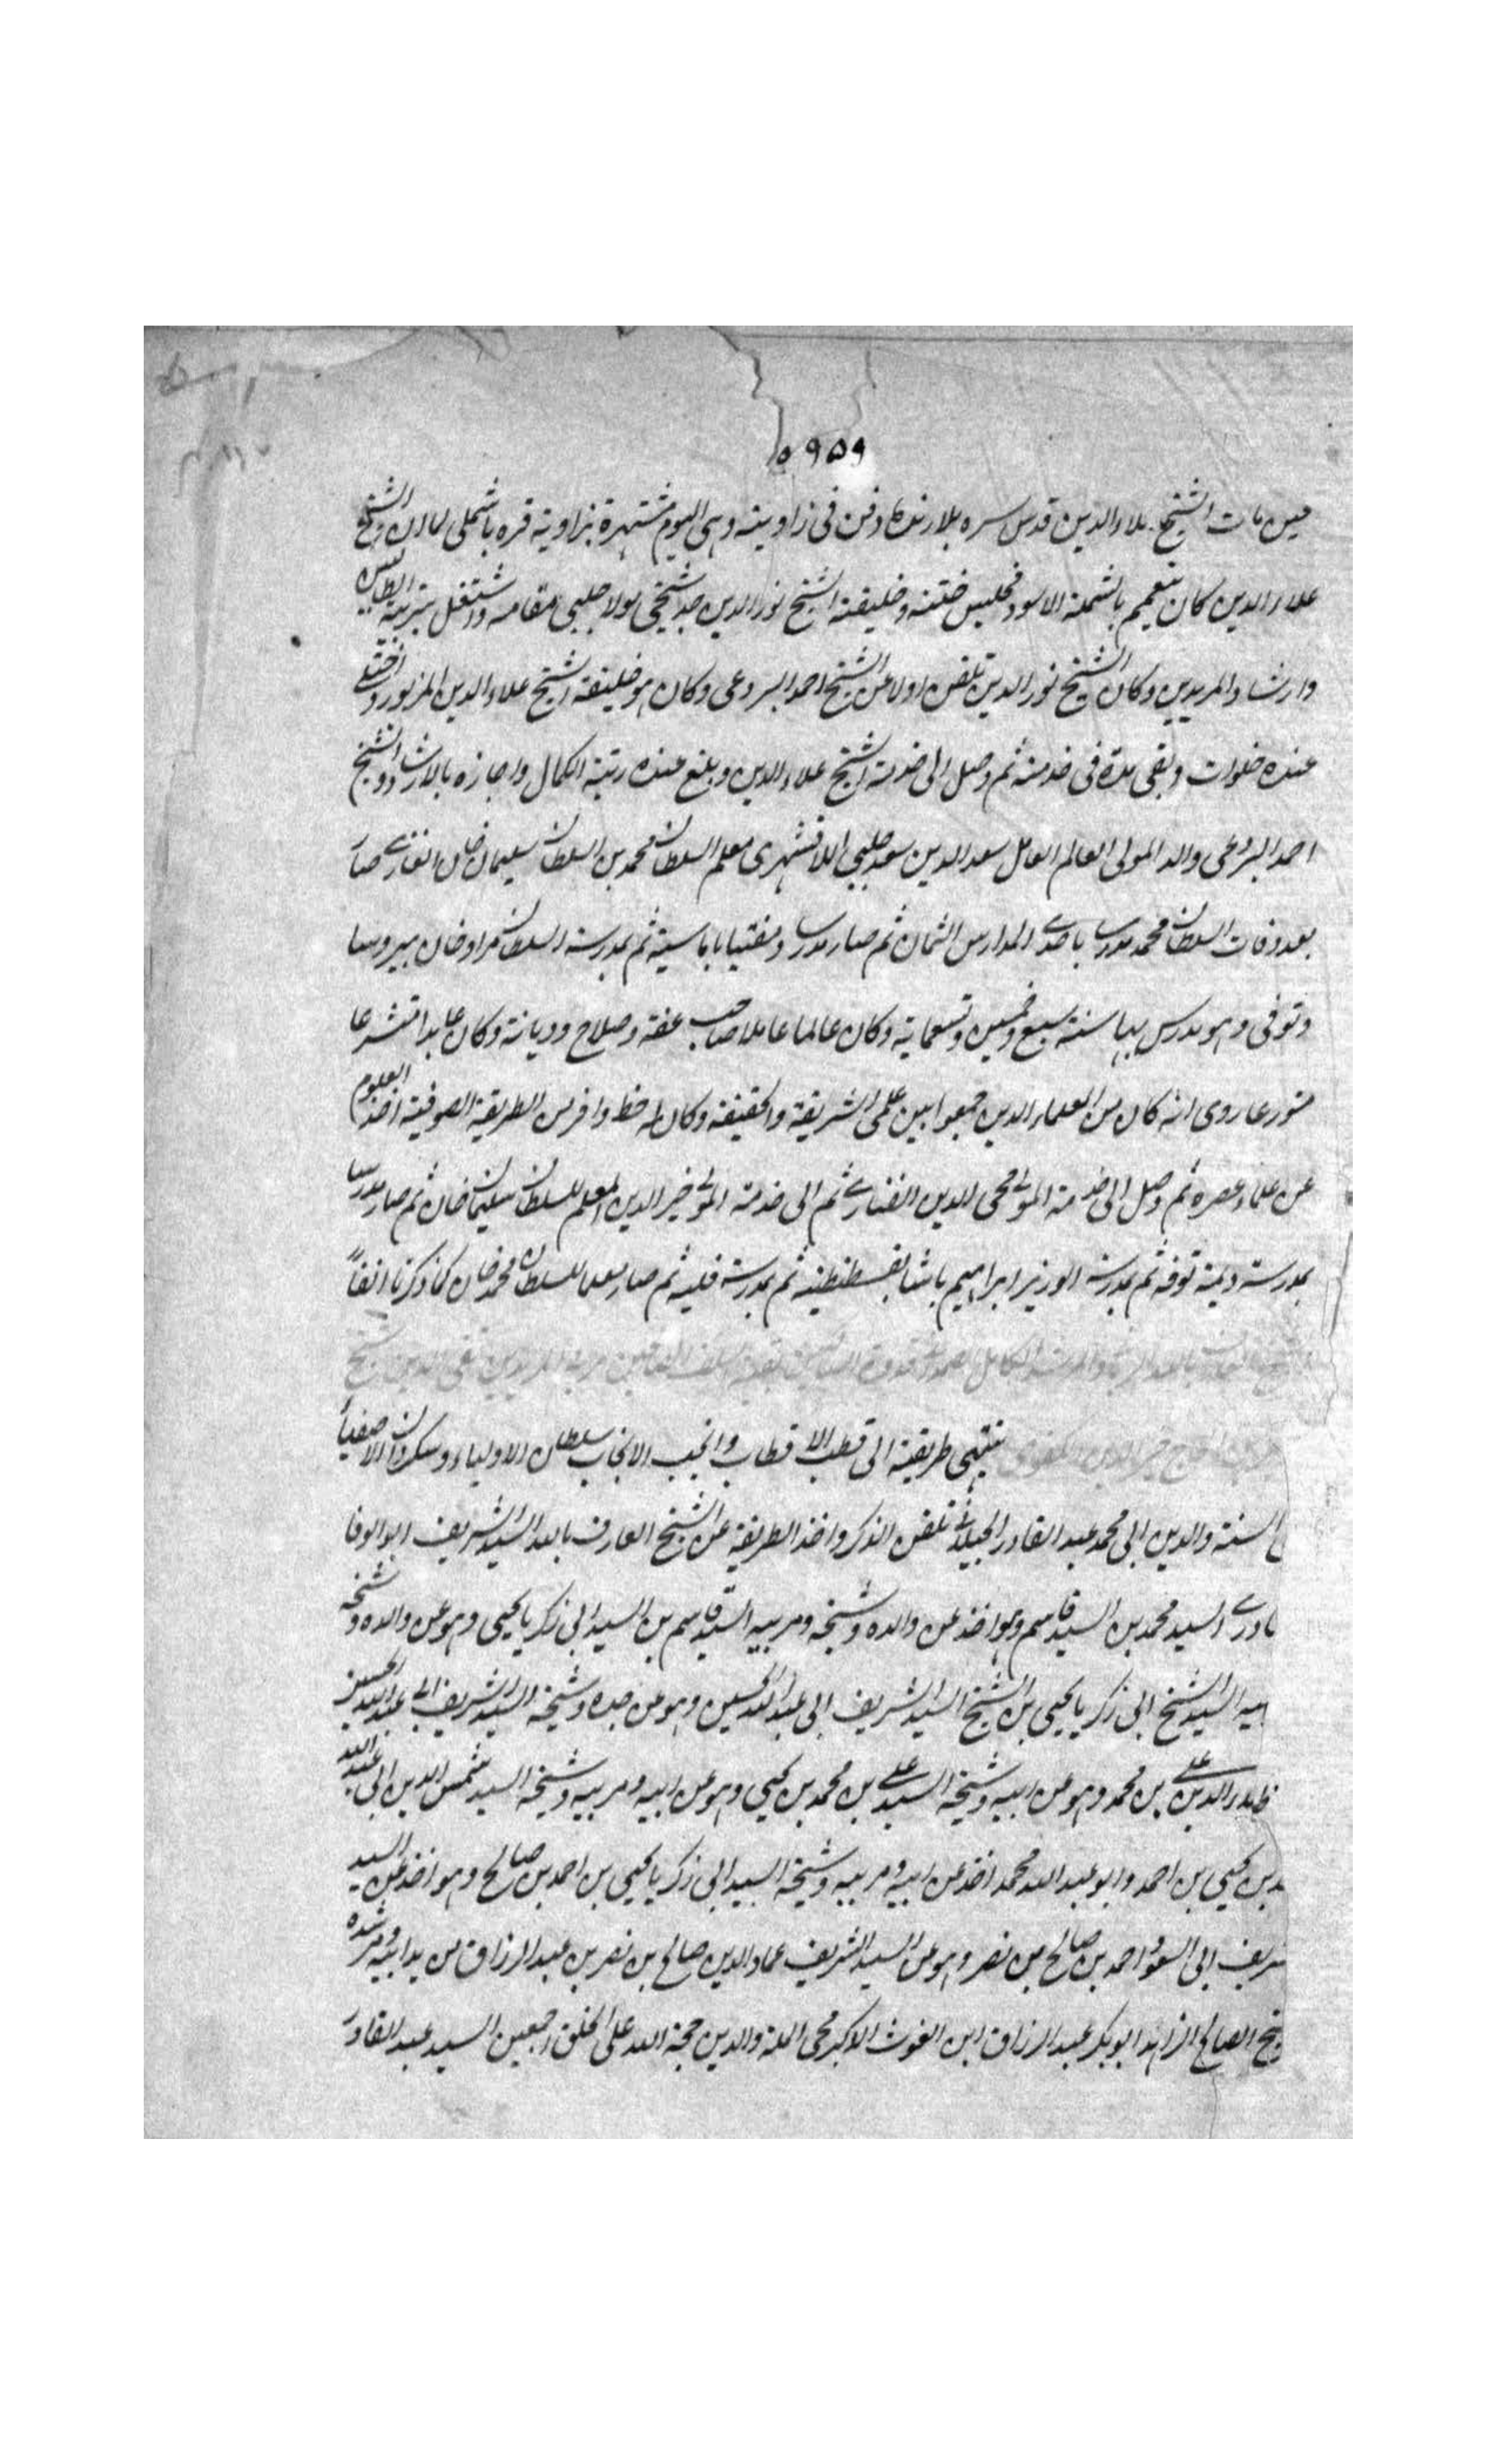 ٩٥٩
حين مات الشيخ علاء الدين قدس سره بلارنده ودفن فى زاويته وهى اليوم مشتهرة بزاوية قره باشملى لما ان الشيخ
علاء الدين كان يتعمم بالشملة الاسود فجلس ختنه وخليفته الشيخ نور الدين جد شيخى مولا جلبى مقامه واشتغل بتربية الطالبين
وارشاد المريدين وكان الشيخ نور الدين تلقن اولا عن الشيخ احمد البردعى وكان هو خليفة الشيخ علاء الدين المزبور واختلى
عنده خلوات وبقى مدة فى خدمته ثم وصل الى خدمة الشيخ علاء الدين وبلغ عنده رتبة الكمال واجازه بالارشاد والشيخ
احمد البردعى والد المولى العالم العامل سعد الدين سعد جلبى الاقشهرى معلم السلطان محمد بن السلطان سليمان خان الغازى صار
بعد وفات السلطان محمد مدرسا باحدى المدارس الثمان ثم صار مدرسا ومفتيا باماسية ثم بمدرسة السلطان مراد خان ببروسا
وتوفى وهو مدرس بها سنة سبع وخمسين وتسعماية وكان عالما عاملا صاحب عفة وصلاح وديانة وكان عابدا متشرعا
متورعا روى انه كان من العلماء الدين جمعوا بين علمى الشريعة والحقيقة وكان له حظ وافر من الطريقة الصوفية اخذ العلوم
عن علماء عصره ثم وصل الى خدمة المولى محى الدين الفنارى ثم الى خدمة المولى خير الدين المعلم للسلطان سليمان خان ثم صار مدرسا
بمدرسة ديمه توقه ثم بمدرسة الوزير ابراهيم باشا بقسطنطنية ثم بمدرسة فلبه ثم صار معلما للسلطان محمد خان كما ذكرنا انفا
ينتهى طريقته الى قطب الاقطاب وانجب الانجاب سلطان الاولياء وسكردان الاصفياء
السنة والدين ابى محمد عبد القادر الجيلانى تلقن الذكر واخذ الطريقة عن الشيخ العارف بالله السيد الشريف ابو الوفا
ادرى السيد محمد بن السيد قاسم وهو اخذ عن والده وشيخه ومربيه السيد قاسم بن السيد ابى زكريا يحيى وهو عن والده وشيخه
بيه السيد الشيخ ابى زكريا يحيى بن الشيخ السيد الشريف ابى عبد الله الحسين وهو عن جده وشيخه السيد الشريف ابى عبد الله الحسين
بدر الدين على بن محمد وهو عن ابيه وشيخه السيد على بن محمد بن يحيى وهو عن ابيه ومربيه وشيخه السيد شمس الدين ابى عبد الله
مد بن يحيى بن احمد وابو عبد الله محمد اخذ عن ابيه ومربيه وشيخه السيد ابى زكريا يحيى بن احمد بن صالح وهو اخذ عن السيد
شريف ابى السعود احمد بن صالح بن نصر وهو عن السيد الشريف عماد الدين صالح بن نصر بن عبد الرزاق من يد ابيه ومرشده
يخ الصالح الزاهد ابو بكر عبد الرزاق ابن الغوث الاكبر محى الملة والدين حجة الله على الخلق اجمعين السيد عبد القادر